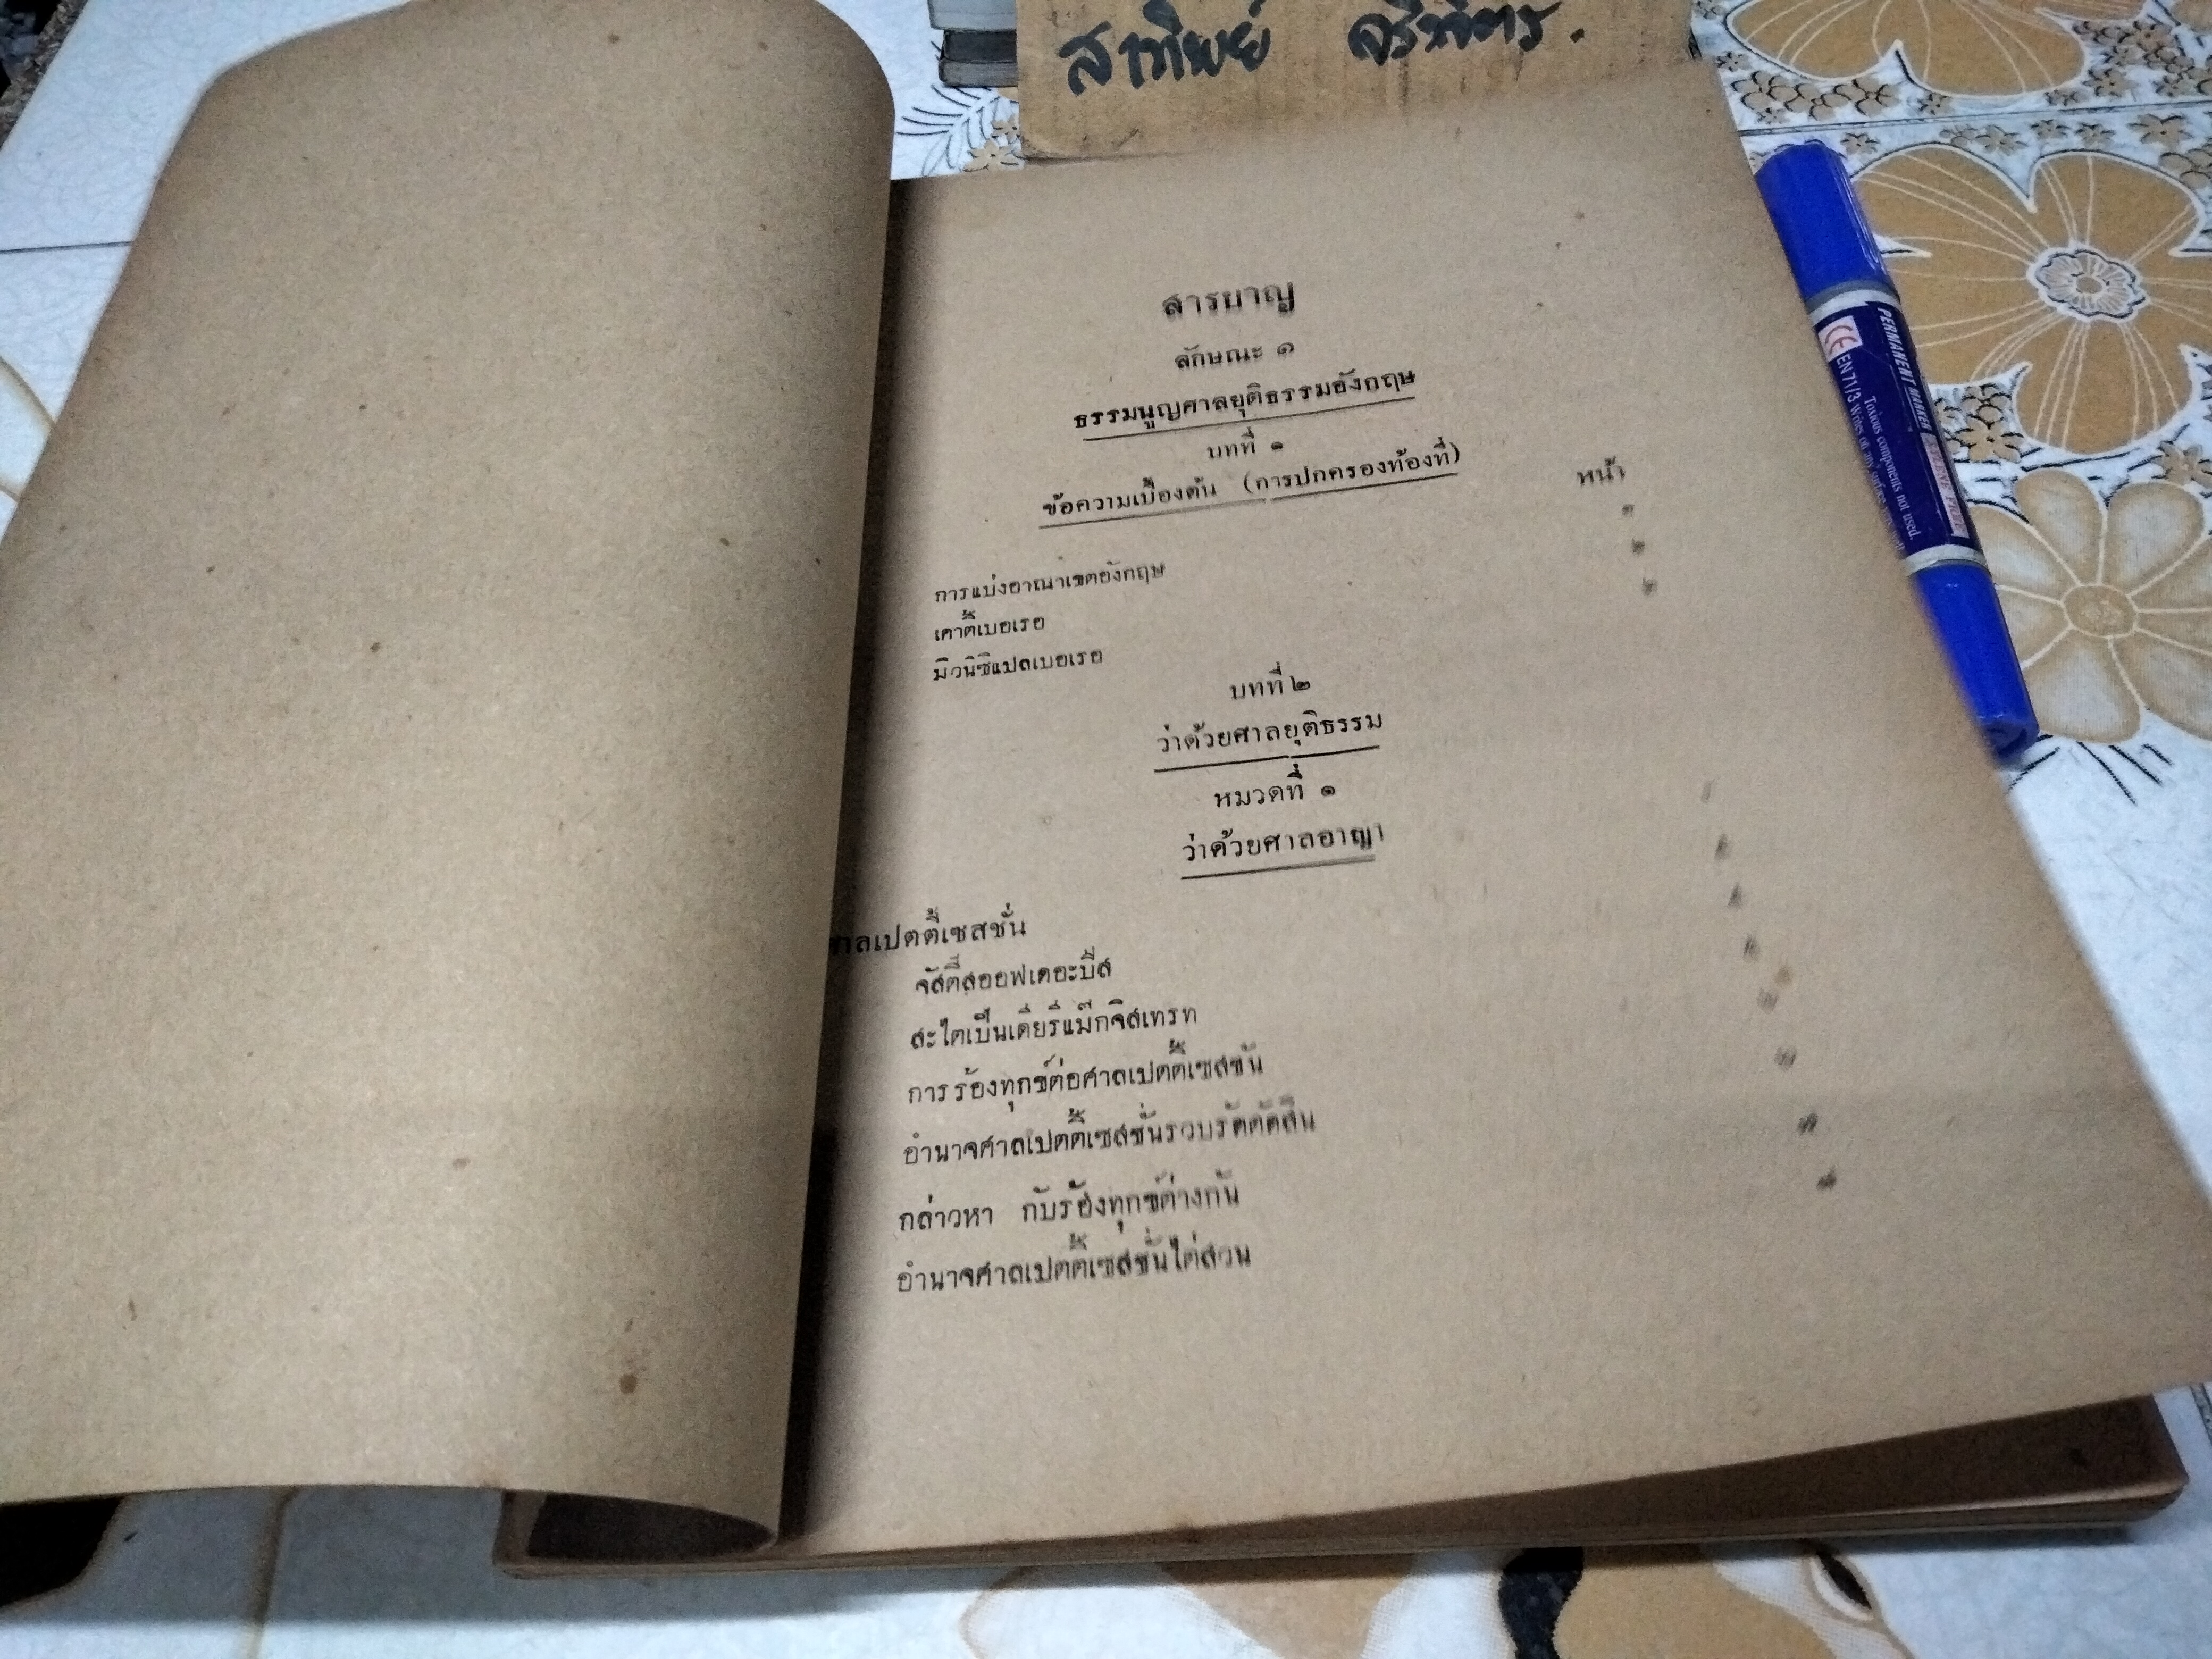 สาทิพย์
สารบาญ
ลักษณะ ๑
ธรรมนูญศาลยุติธรรมอังกฤษ
บทที่ ๑
ข้อความเบื้องต้น (การปกครองท้องที่)
หน้า
การแบ่งอาณาเขตอังกฤษ ๑
เคาตี้เบอเรอ ๒
มิวนิซิแปลเบอเรอ ๒
บทที่ ๒
ว่าด้วยศาลยุติธรรม
หมวดที่ ๑
ว่าด้วยศาลอาญา
ศาลเปตตี้เซสชั่น
จัสติสออฟเดอะบีส
สะไตเบ็นเดียรีแม๊กจิสเทรท
การร้องทุกข์ต่อศาลเปตตี้เซสชั่น
อำนาจศาลเปตตี้เซสชั่นรวบรัดตัดสิน
กล่าวหา กับร้องทุกข์ต่างกัน
อำนาจศาลเปตตี้เซสชั่นไต่สวน
PERMANENT MARKER
CE EN 71/3
Toxious components not used.